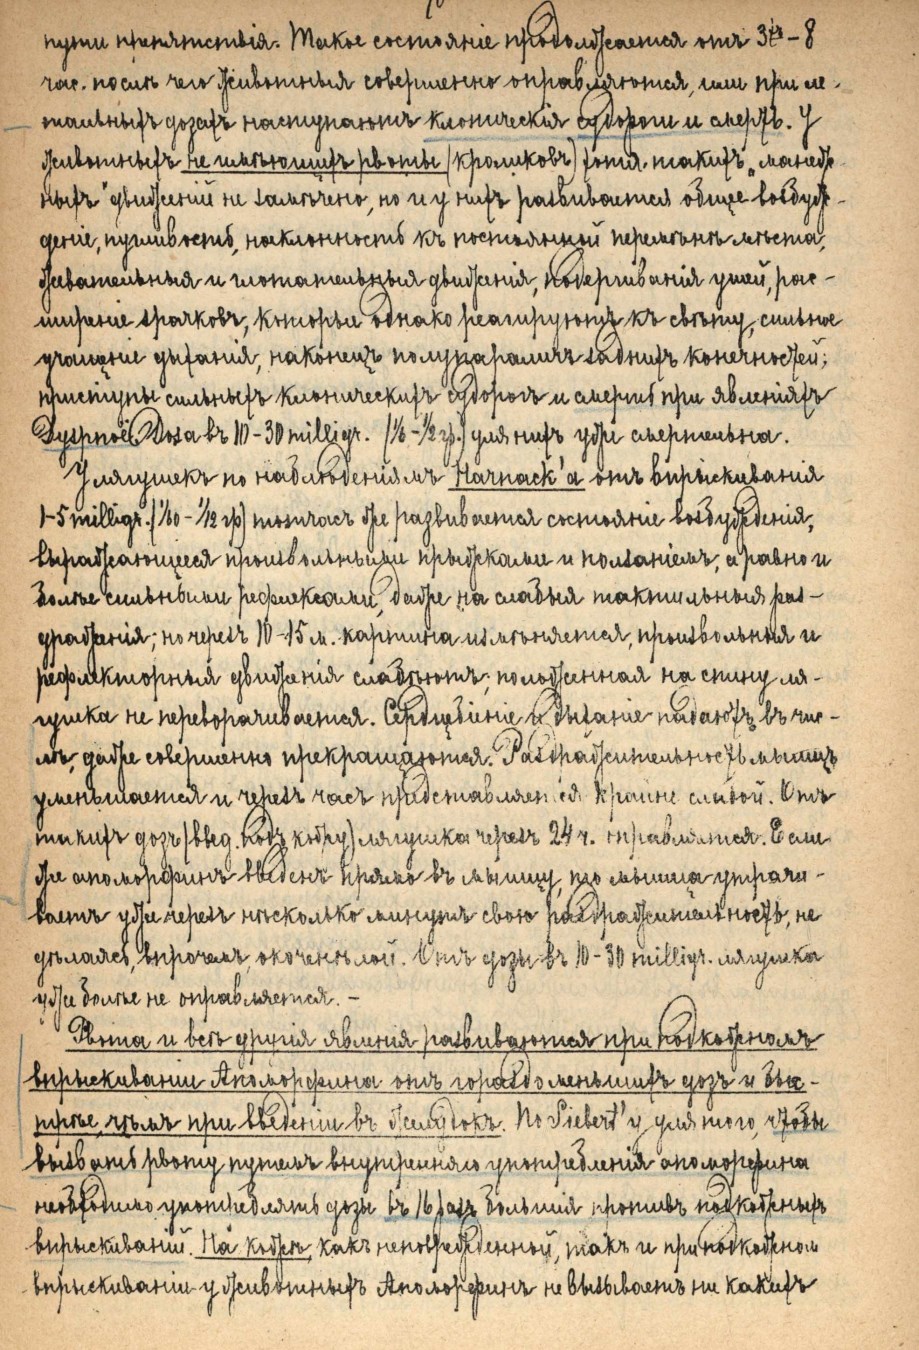 пути препятствія. Такое состояніе продолжается отъ 3хъ – 8
час. послѣ чего животныя совершенно оправляются, или при ле-
тальныхъ дозахъ наступаютъ клоническія судороги и смерть. У
животныхъ не имѣющихъ рвоты (кроликовъ) хотя такихъ „манеж-
ныхъ" движеній не замѣчено, но и у нихъ развивается общее возбуж-
деніе, пугливость, наклонность къ постоянной перемѣнѣ мѣста,
жевательныя и глотательныя движенія, подергиванія ушей, рас-
ширеніе зрачковъ, которые однако реагируютъ къ свѣту, сильное
учащеніе дыханія, наконецъ полупараличъ заднихъ конечностей;
приступы сильныхъ клоническихъ судорогъ и смерть при явленіяхъ
Dyspnoë. Доза въ 10 – 30 milligr. (1/6 – 1/2 гр.) для нихъ уже смертельна.
У лягушекъ по наблюденіямъ Harnack'а отъ впрыскиванія
1–5 milligr. (1/60 – 1/12 гр) тотчасъ же развивается состояніе возбужденія,
выражающееся произвольными прыжками и ползаніемъ, а равно и
болѣе сильными рефлексами, даже на слабыя тактильныя раз-
драженія; но черезъ 10–15 м. картина измѣняется, произвольныя и
рефлекторныя движенія слабѣютъ; положенная на спину ля-
гушка не переворачивается. Сердцебіеніе и дыханіе падаютъ въ чис-
лѣ, даже совершенно прекращаются. Раздражительность мышцъ
уменьшается и черезъ часъ представляется крайне слабой. Отъ
такихъ дозъ (введ. подъ кожу) лягушка черезъ 24 ч. оправляется. Если
же апоморфинъ введенъ прямо въ мышцу, то мышца утрачи-
ваетъ уже черезъ нѣсколько минутъ свою раздражительность, не
дѣлаясь, впрочемъ, окоченѣлой. Отъ дозы въ 10–30 milligr. лягушка
уже болѣе не оправляется. –
Рвота и всѣ другія явленія развиваются при подкожномъ
впрыскиваніи Апоморфина отъ гораздо меньшихъ дозъ и быс-
трѣе, чѣмъ при введеніи въ желудокъ. По Siebert'у для того, чтобы
вызвать рвоту путемъ внутренняго употребленія апоморфина
необходимо употреблять дозы въ 16 разъ большія противъ подкожныхъ
впрыскиваній. На кожѣ, какъ неповрежденной, такъ и при подкожном
впрыскиваніи у животныхъ Апоморфинъ не вызываетъ ни какихъ